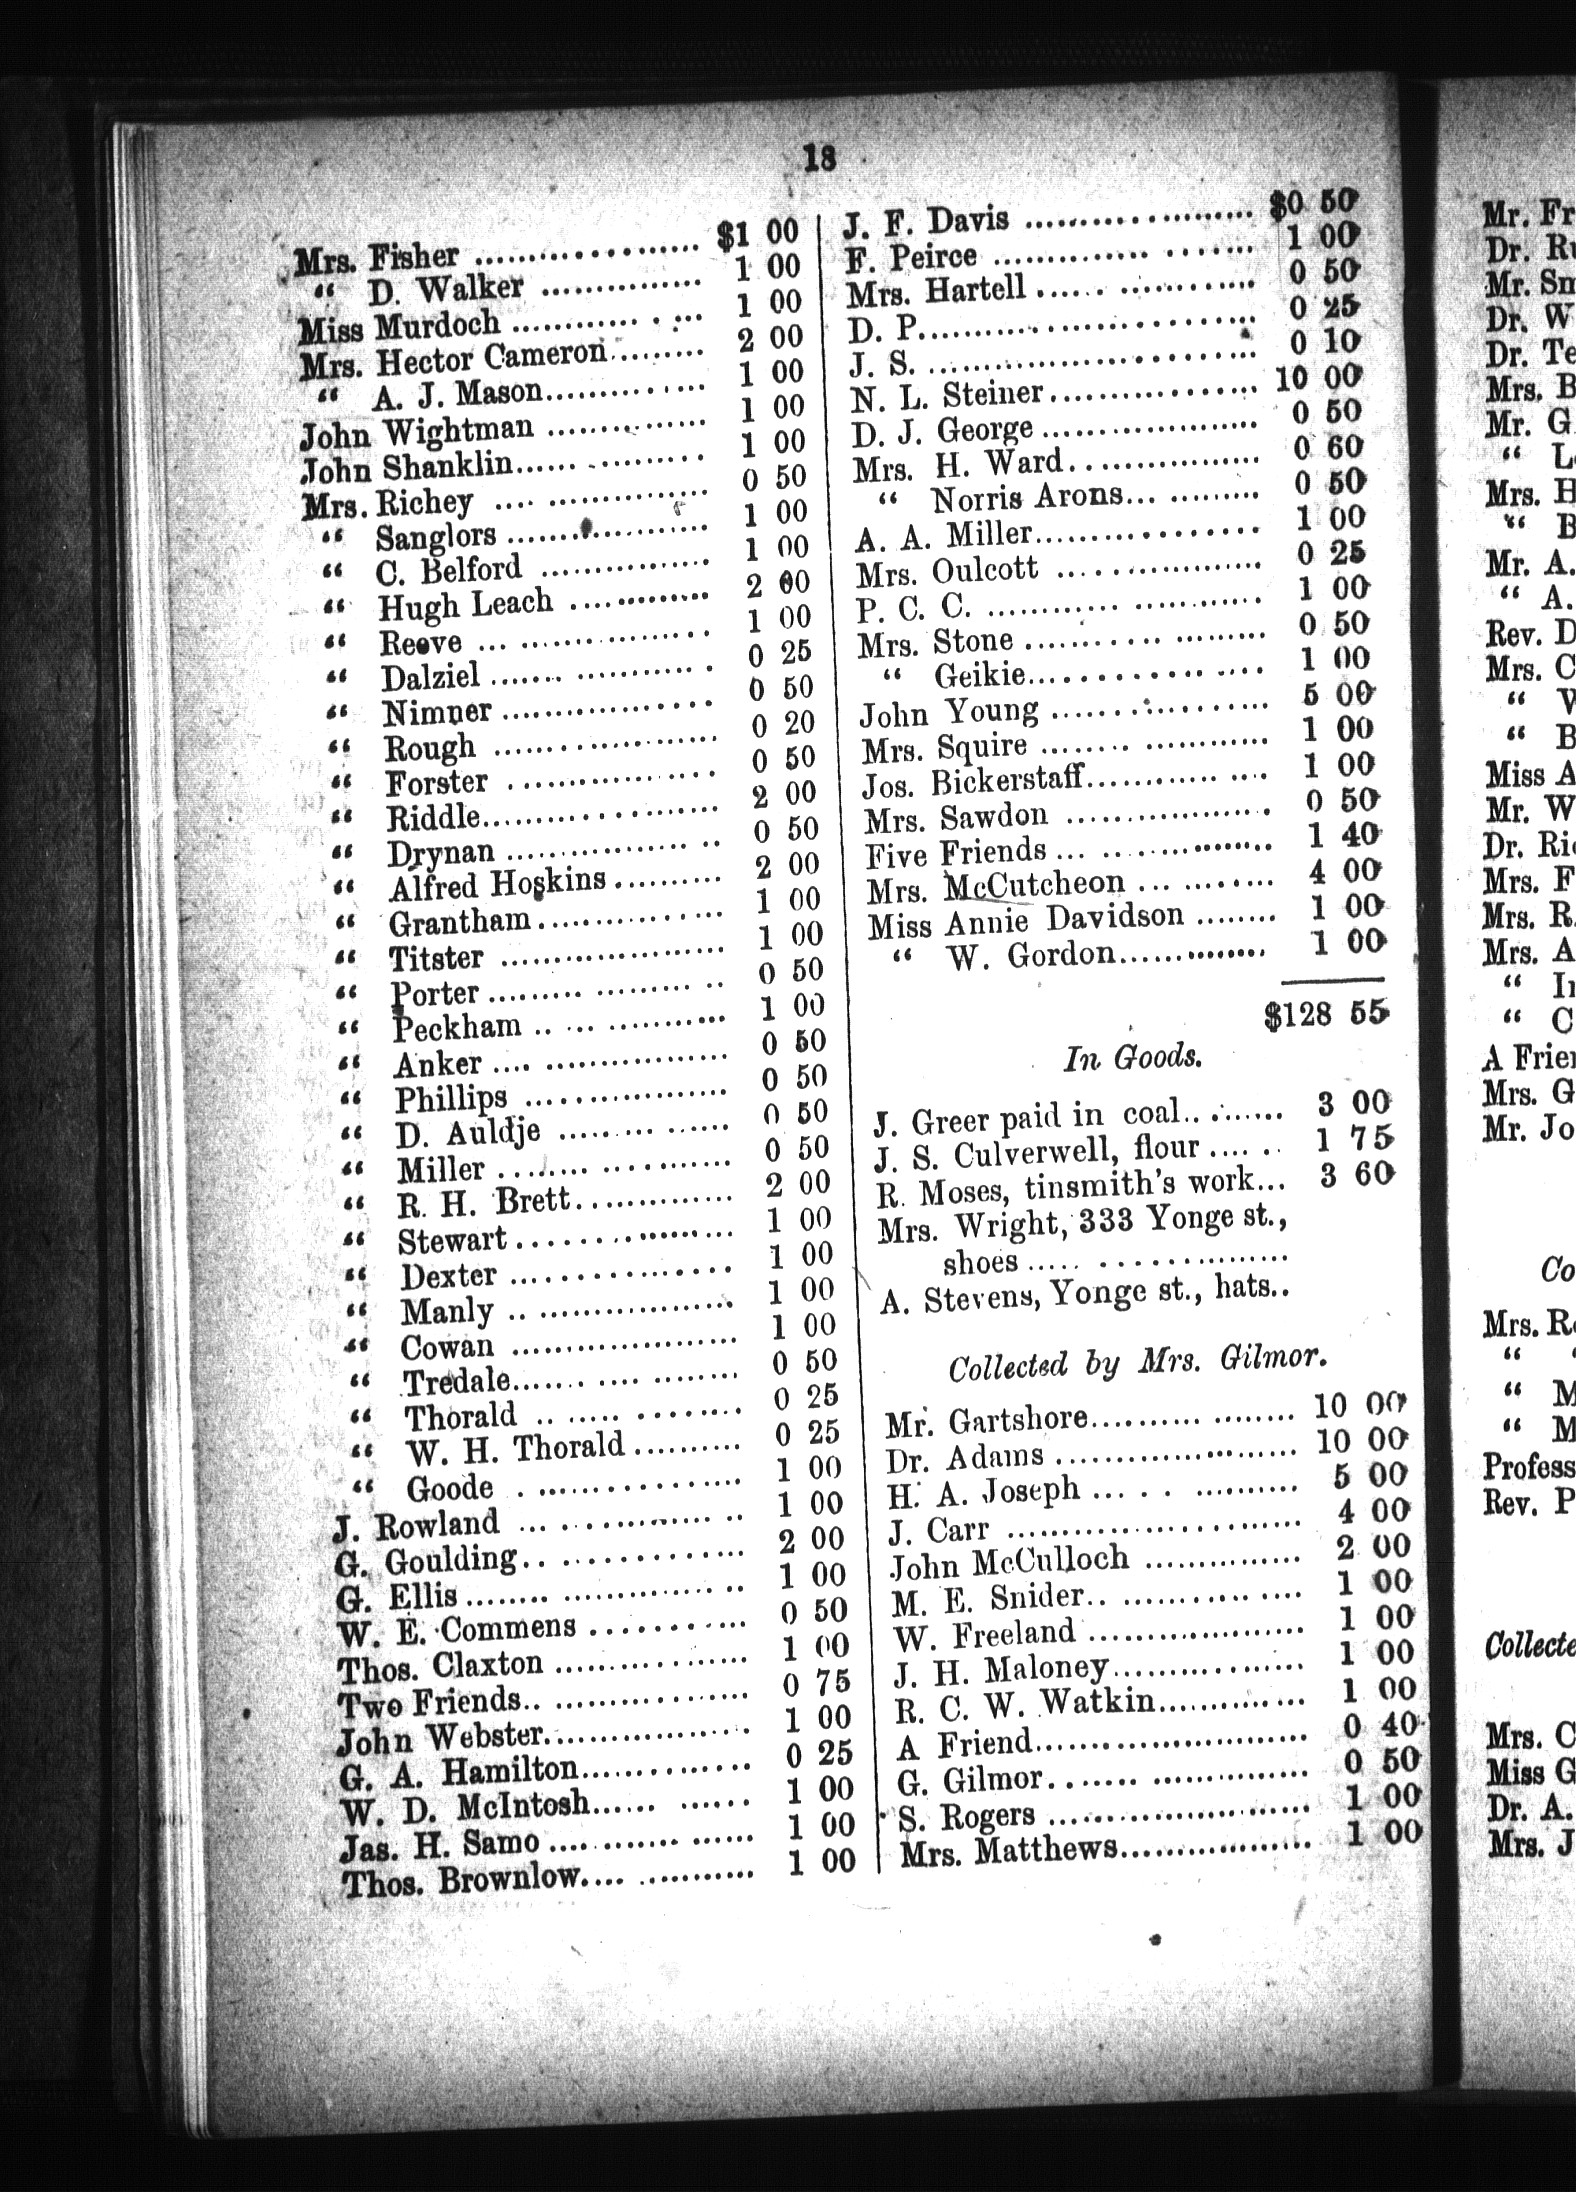 18
Mrs. Fisher .................... $1 00
“ D. Walker ............... 1 00
Miss Murdoch ................ 1 00
Mrs. Hector Cameron......... 2 00
“ A. J. Mason............... 1 00
John Wightman ............... 1 00
John Shanklin................ 1 00
Mrs. Richey .................. 0 50
“ Sanglors .................. 1 00
“ C. Belford ................ 1 00
“ Hugh Leach .............. 2 00
“ Reeve .................... 1 00
“ Dalziel ................... 0 25
“ Nimner .................. 0 50
“ Rough ................... 0 20
“ Forster .................. 0 50
“ Riddle.................... 2 00
“ Drynan .................. 0 50
“ Alfred Hoskins .......... 2 00
“ Grantham................ 1 00
“ Titster ................... 1 00
“ Porter .................... 0 50
“ Peckham ................ 1 00
“ Anker ................... 0 50
“ Phillips .................. 0 50
“ D. Auldje ............... 0 50
“ Miller .................... 0 50
“ R. H. Brett.............. 2 00
“ Stewart .................. 1 00
“ Dexter ................... 1 00
“ Manly ................... 1 00
“ Cowan .................. 1 00
“ Tredale.................. 0 50
“ Thorald ................. 0 25
“ W. H. Thorald .......... 0 25
“ Goode ................... 1 00
J. Rowland ................... 1 00
G. Goulding.................. 2 00
G. Ellis ....................... 1 00
W. E. Commens .............. 0 50
Thos. Claxton ................ 1 00
Two Friends.................. 0 75
John Webster................. 1 00
G. A. Hamilton.............. 0 25
W. D. McIntosh............. 1 00
Jas. H. Samo ................ 1 00
Thos. Brownlow.............. 1 00
J. F. Davis .................... $0 50
F. Peirce ...................... 1 00
Mrs. Hartell ................... 0 50
D. P........................... 0 25
J. S. .......................... 0 10
N. L. Steiner.................. 10 00
D. J. George................... 0 50
Mrs. H. Ward................. 0 60
“ Norris Arons............. 0 50
A. A. Miller................... 1 00
Mrs. Oulcott .................. 0 25
P. C. C. ....................... 1 00
Mrs. Stone .................... 0 50
“ Geikie.................... 1 00
John Young ................... 5 00
Mrs. Squire ................... 1 00
Jos. Bickerstaff................ 1 00
Mrs. Sawdon .................. 0 50
Five Friends .................. 1 40
Mrs. McCutcheon ............ 4 00
Miss Annie Davidson ........ 1 00
“ W. Gordon.............. 1 00
$128 55
In Goods.
J. Greer paid in coal......... 3 00
J. S. Culverwell, flour ...... 1 75
R. Moses, tinsmith's work... 3 60
Mrs. Wright, 333 Yonge st.,
shoes ....................
A. Stevens, Yonge st., hats..
Collected by Mrs. Gilmor.
Mr. Gartshore................. 10 00
Dr. Adams .................... 10 00
H. A. Joseph ................. 5 00
J. Carr ........................ 4 00
John McCulloch .............. 2 00
M. E. Snider.................. 1 00
W. Freeland .................. 1 00
J. H. Maloney................ 1 00
R. C. W. Watkin............. 1 00
A Friend...................... 0 40
G. Gilmor..................... 0 50
S. Rogers ..................... 1 00
Mrs. Matthews................ 1 00
Mr. Fr
Dr. Ru
Mr. Sm
Dr. W
Dr. Te
Mrs. B
Mr. G
“ L
Mrs. H
“ B
Mr. A.
“ A.
Rev. D
Mrs. C
“ W
“ B
Miss A
Mr. W
Dr. Ric
Mrs. F
Mrs. R.
Mrs. A
“ In
“ C
A Frien
Mrs. G
Mr. Jo
Co
Mrs. Ro
“
“ M
“ M
Profess
Rev. P
Collecte
Mrs. C
Miss G
Dr. A.
Mrs. J